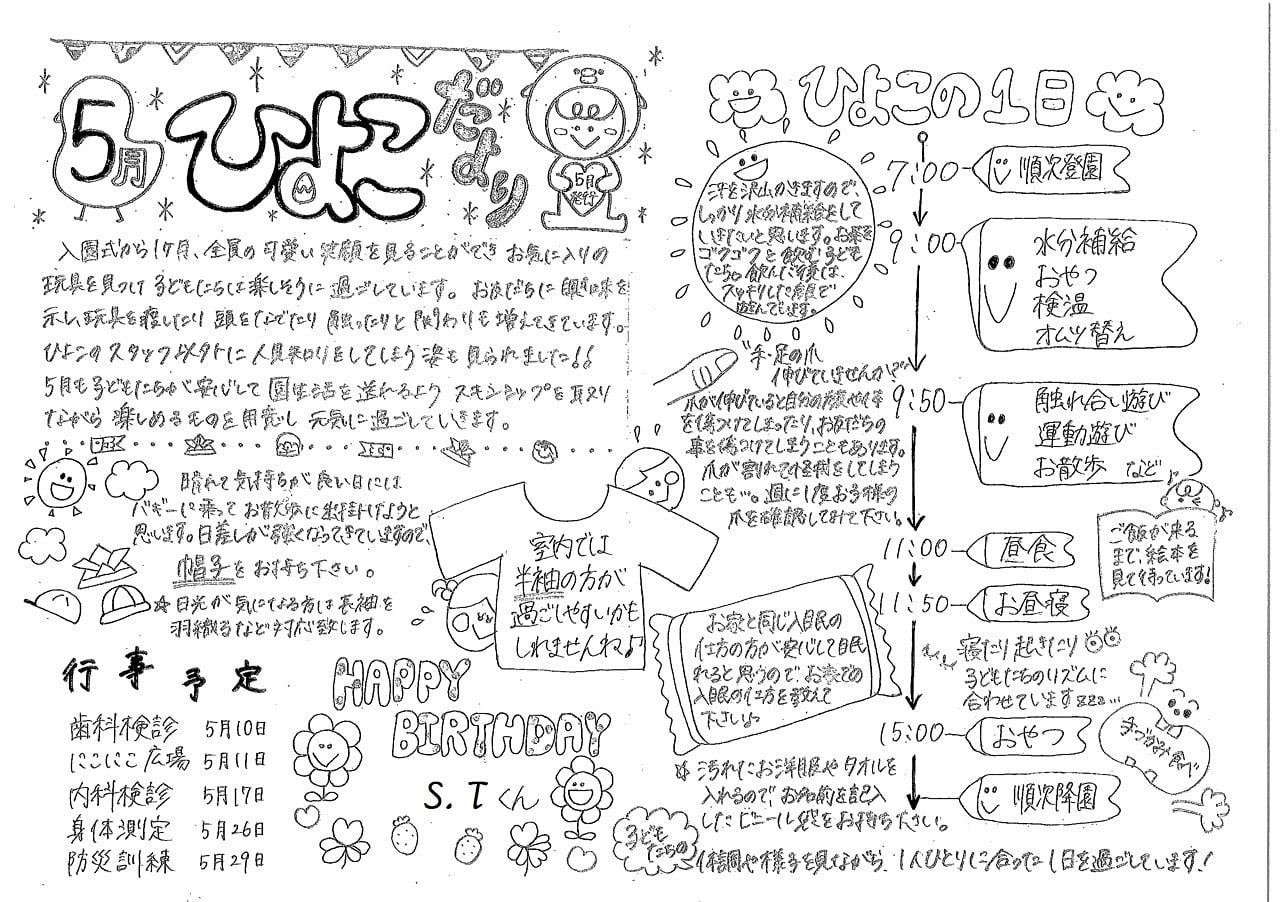 5月 ひよこだより
5月発行
入園式から1ヶ月、全員の可愛い笑顔を見ることができ お気に入りの
玩具を見つけ 子どもたちは楽しそうに 過ごしています。 お友だちに 興味を
示し、玩具を渡したり 頭をなでたり 触ったりと 関わりも 増えてきています。
ひよこのスタッフ以外に 人見知りをしてしまう 姿も 見られました!!
5月も子どもたちが 安心して 園生活を 送れるよう スキンシップを 取り
ながら 楽しめるものを 用意し 元気に 過ごしていきます。
晴れて気持ちが 良い日には
バギーに乗って お散歩に出掛けようと
思います。日差しが強くなってきていますので、
帽子を お持ち下さい。
☆ 日光が 気になる方は 長袖を
羽織るなど 対応致します。
室内では
半袖の方が
過ごしやすいかも
しれませんね♪
行事予定
歯科検診 5月10日
にこにこ広場 5月11日
内科検診 5月17日
身体測定 5月26日
防災訓練 5月29日
HAPPY
BIRTHDAY
S.Tくん
ひよこの1日
汗を沢山かきますので、
しっかり水分補給をして
いきたいと思います。お茶を
ゴクゴクと飲む子ども
たち。飲んだ後は、
スッキリした表情で
遊んでいます。
"手・足の爪
伸びていませんか?"
爪が伸びていると自分の顔や体
を傷つけてしまったり、お友だちの
事を傷つけてしまうこともあります。
爪が割れて怪我をしてしまう
ことも…。週に1度お子様の
爪を確認してみて下さい。
お家と同じ入眠の
仕方の方が安心して眠
れると思うので、お家での
入眠の仕方を教えて
下さい♪
☆ 汚れたお洋服やタオルを
入れるので、お名前を記入
したビニール袋をお持ち下さい。
7:00 順次登園
9:00 水分補給
おやつ
検温
オムツ替え
9:50 触れ合い遊び
運動遊び
お散歩 など
11:00 昼食
ご飯が来る
まで、絵本を
見て待っています!
11:50 お昼寝
寝たり起きたり
子どもたちのリズムに
合わせています zzz…
15:00 おやつ
手づかみ食べ
順次降園
子ども
たちの
体調や様子を見ながら、1人ひとりに合った1日を過ごしています!